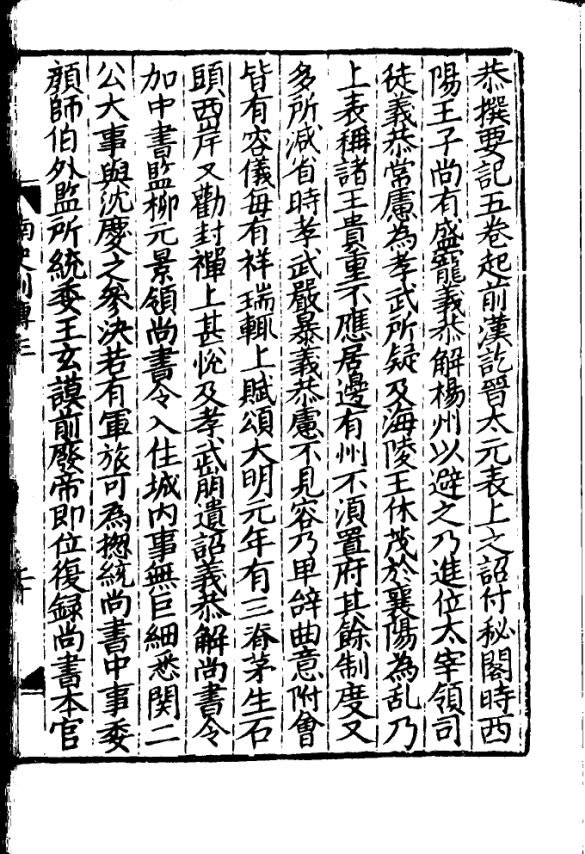 恭撰要記五卷起前漢訖晉太元表上之詔付秘閣時西
陽王子尚有盛寵義恭解楊州以避之乃進位太宰領司
徒義恭常慮為孝武所疑及海陵王休茂於襄陽為乱乃
上表稱諸王貴重不應居邊有州不湏置府其餘制度又
多所減省時孝武嚴暴義恭慮不見容乃卑辝曲意附會
皆有容儀每有祥瑞輙上賦頌大明元年有三脊茅生石
頭西岸又勸封禪上甚悅及孝武崩遺詔義恭解尚書令
加中書監柳元景領尚書令入住城内事無巨細悉関二
公大事與沈慶之參決若有軍旅可為摠統尚書中事委
顔師伯外監所統委王玄謨前廢帝即位復録尚書本官
南史列傳三